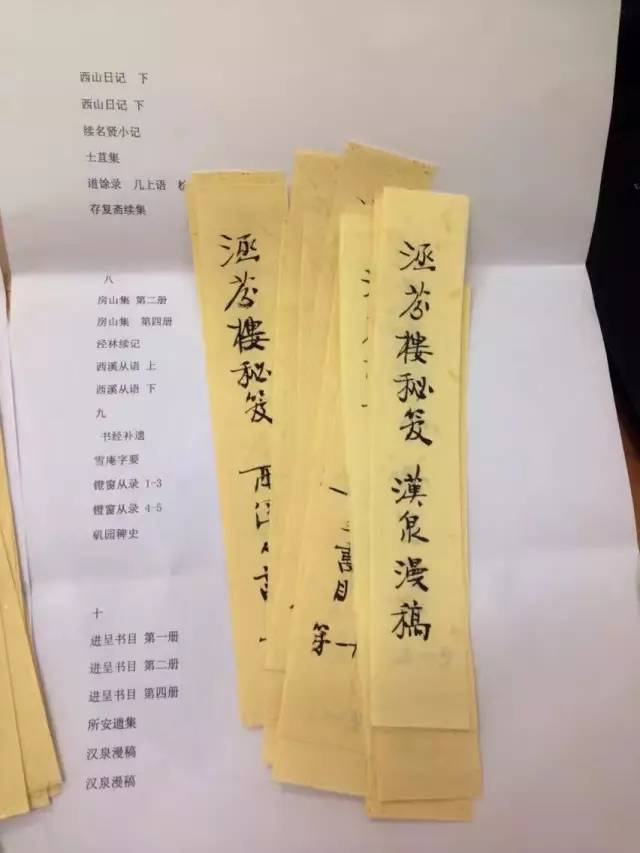 西山日记 下
西山日记 下
续名贤小记
土苴集
道馀录 几上语
存复斋续集
八
房山集 第二册
房山集 第四册
泾林续记
西溪丛语 上
西溪丛语 下
九
书经补遗
雪庵字要
镫窗丛录 1-3
镫窗丛录 4-5
矶园稗史
十
进呈书目 第一册
进呈书目 第二册
进呈书目 第四册
所安遗集
汉泉漫稿
汉泉漫稿
涵芬樓秘笈
第一
涵芬樓秘笈 漢泉漫稿